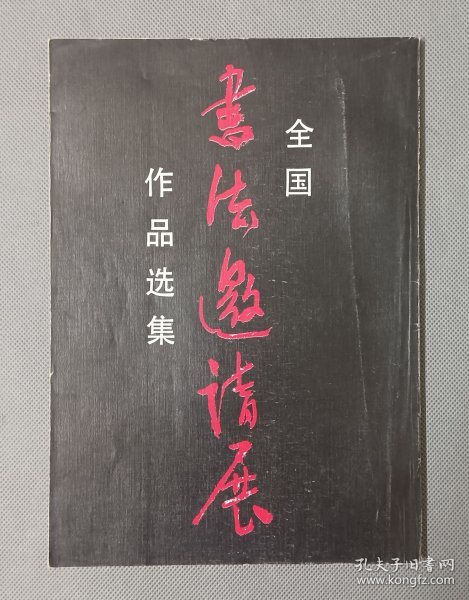 全国
書法邀请展
作品选集
孔夫子旧书网
www.kongfz.com